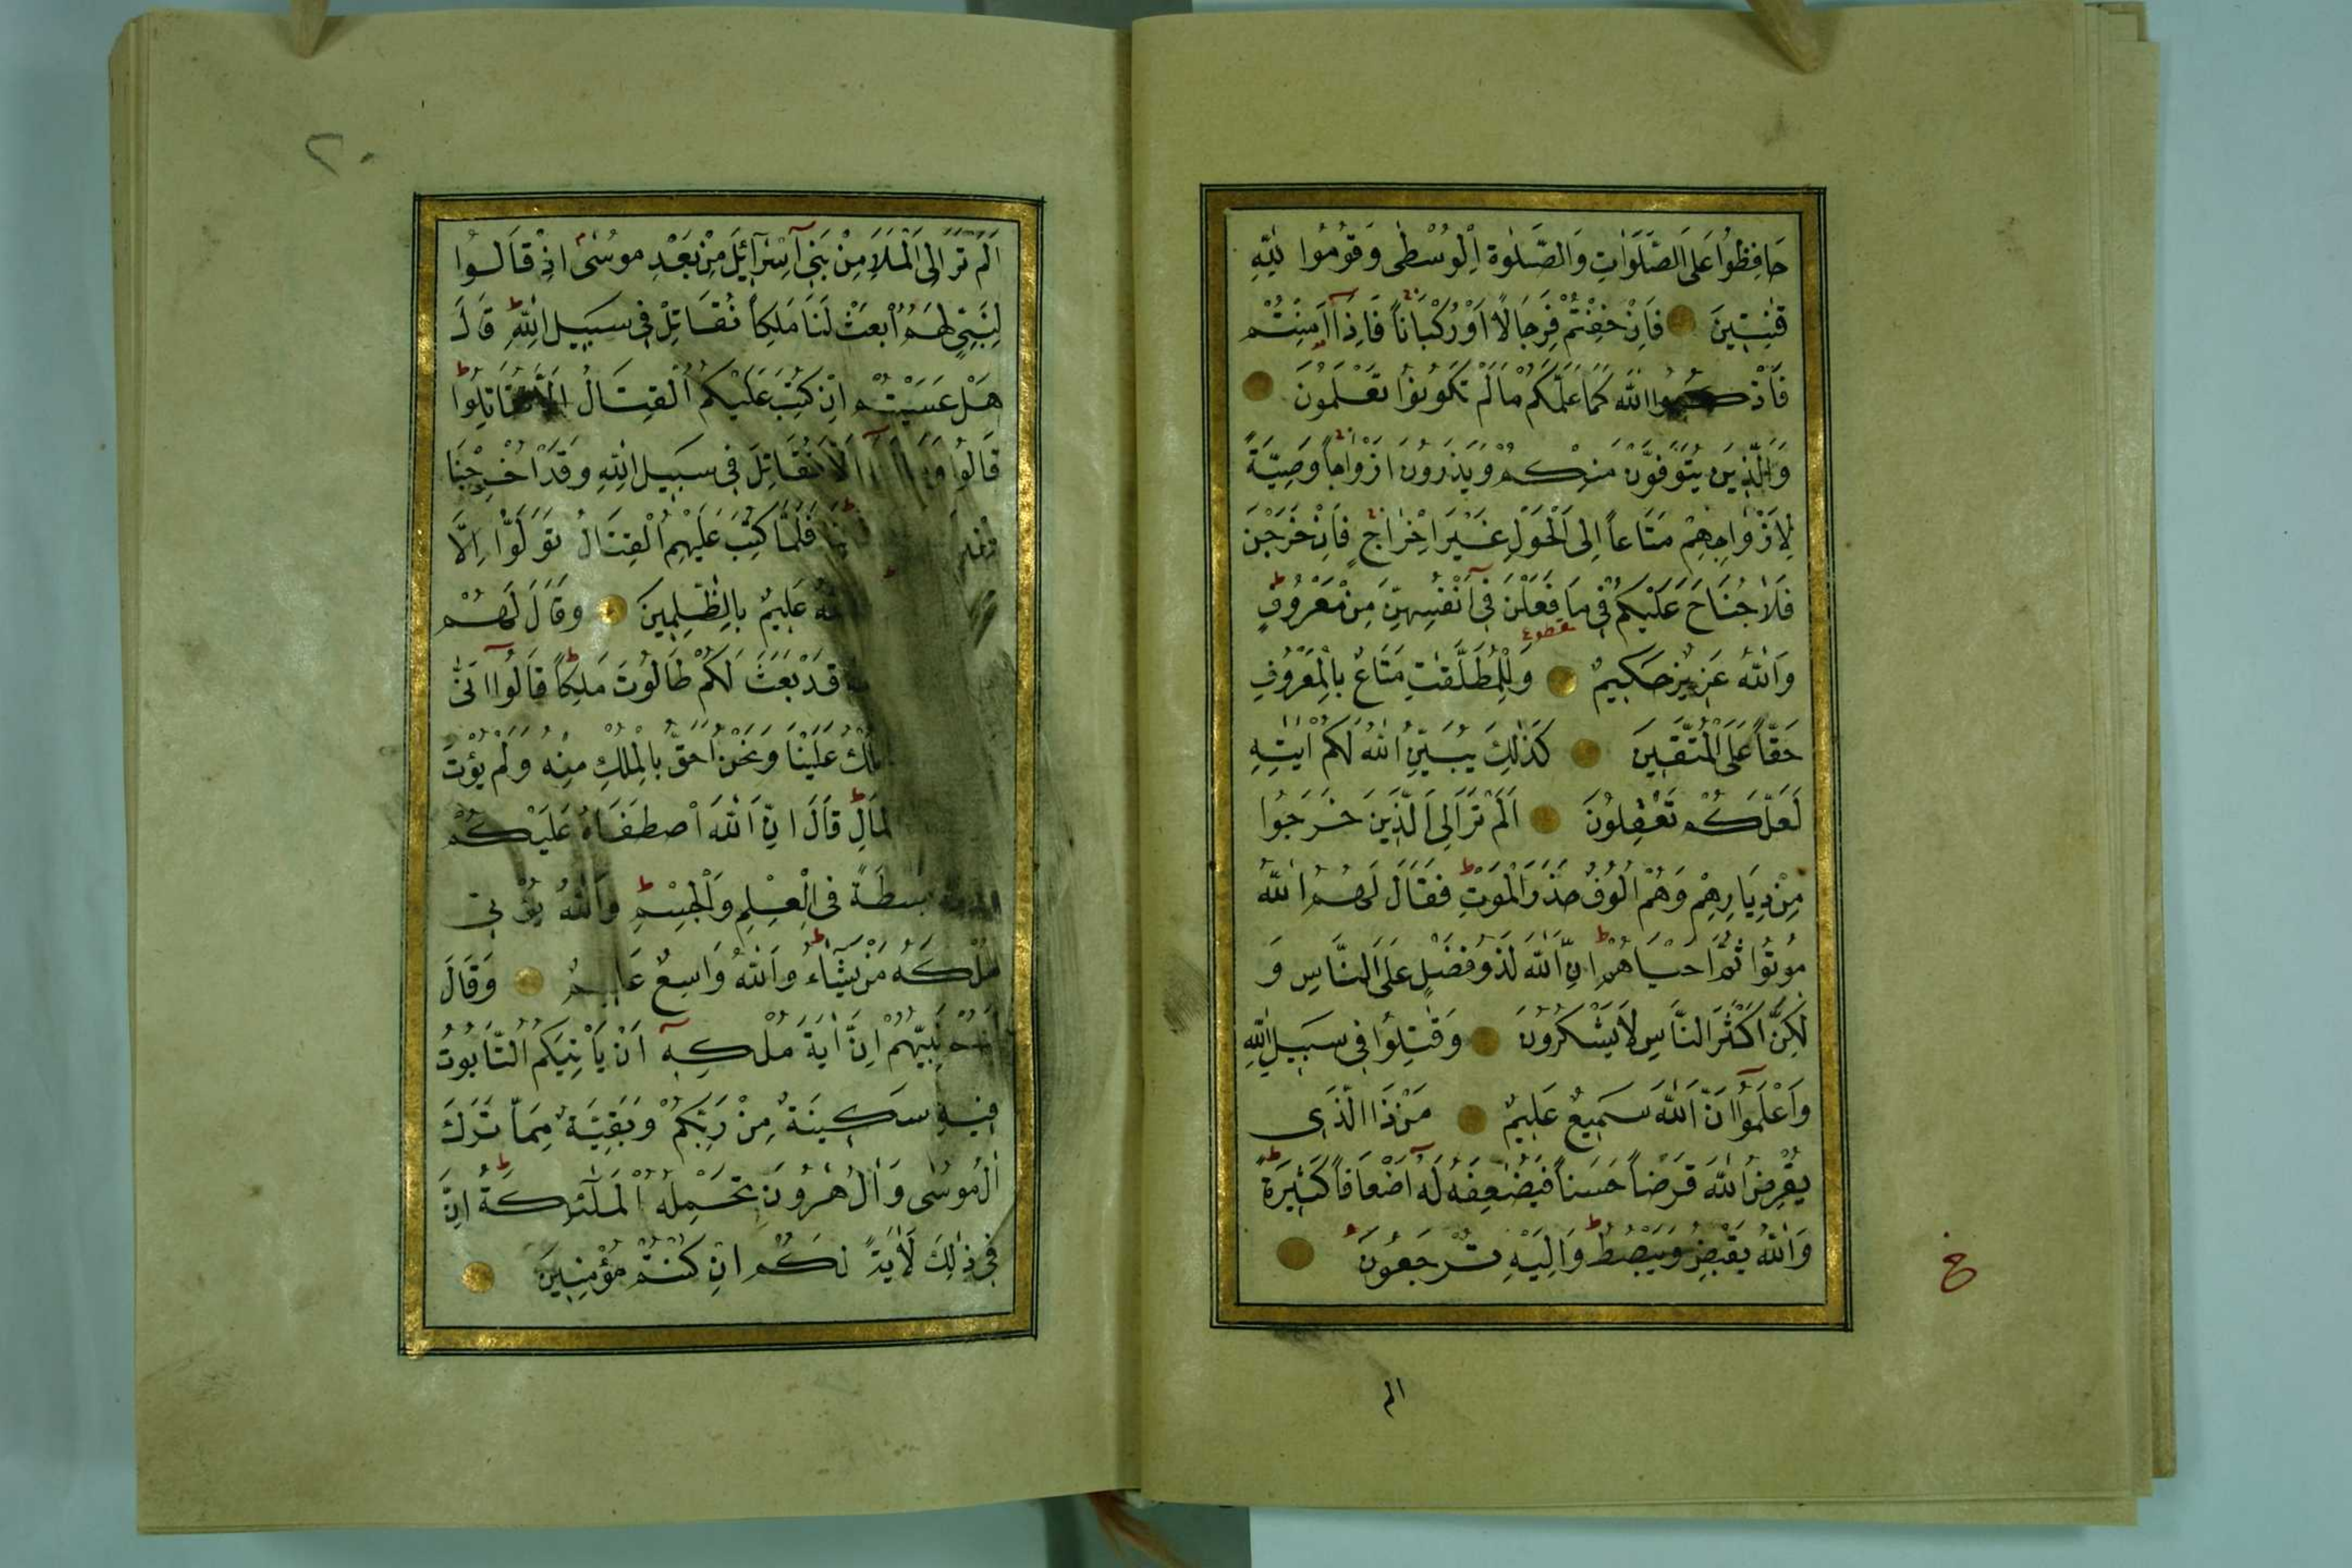 حَافِظُوا عَلَى الصَّلَوَاتِ وَالصَّلٰوةِ الْوُسْطٰى وَقُومُوا لِلّٰهِ
قٰنِتِينَ فَاِنْ خِفْتُمْ فَرِجَالًا اَوْ رُكْبَانًا فَاِذَا اَمِنْتُمْ
فَاذْكُرُوا اللّٰهَ كَمَا عَلَّمَكُمْ مَا لَمْ تَكُونُوا تَعْلَمُونَ
وَالَّذِينَ يُتَوَفَّوْنَ مِنْكُمْ وَيَذَرُونَ اَزْوَاجًا وَصِيَّةً
لِاَزْوَاجِهِمْ مَتَاعًا اِلَى الْحَوْلِ غَيْرَ اِخْرَاجٍ فَاِنْ خَرَجْنَ
فَلَا جُنَاحَ عَلَيْكُمْ فِى مَا فَعَلْنَ فِى اَنْفُسِهِنَّ مِنْ مَعْرُوفٍ
وَاللّٰهُ عَزِيزٌ حَكِيمٌ وَلِلْمُطَلَّقٰتِ مَتَاعٌ بِالْمَعْرُوفِ
حَقًّا عَلَى الْمُتَّقِينَ كَذٰلِكَ يُبَيِّنُ اللّٰهُ لَكُمْ اٰيٰتِهِ
لَعَلَّكُمْ تَعْقِلُونَ اَلَمْ تَرَ اِلَى الَّذِينَ خَرَجُوا
مِنْ دِيَارِهِمْ وَهُمْ اُلُوفٌ حَذَرَ الْمَوْتِ فَقَالَ لَهُمُ اللّٰهُ
مُوتُوا ثُمَّ اَحْيَاهُمْ اِنَّ اللّٰهَ لَذُو فَضْلٍ عَلَى النَّاسِ وَ
لٰكِنَّ اَكْثَرَ النَّاسِ لَا يَشْكُرُونَ وَقٰتِلُوا فِى سَبِيلِ اللّٰهِ
وَاعْلَمُوا اَنَّ اللّٰهَ سَمِيعٌ عَلِيمٌ مَنْ ذَا الَّذِى
يُقْرِضُ اللّٰهَ قَرْضًا حَسَنًا فَيُضٰعِفَهُ لَهُ اَضْعَافًا كَثِيرَةً
وَاللّٰهُ يَقْبِضُ وَيَبْصُطُ وَاِلَيْهِ تُرْجَعُونَ
الم
٢٠
اَلَمْ تَرَ اِلَى الْمَلَاِ مِنْ بَنِى اِسْرَآئِيلَ مِنْ بَعْدِ مُوسٰى اِذْ قَالُوا
لِنَبِىٍّ لَهُمُ ابْعَثْ لَنَا مَلِكًا نُقَاتِلْ فِى سَبِيلِ اللّٰهِ قَالَ
هَلْ عَسَيْتُمْ اِنْ كُتِبَ عَلَيْكُمُ الْقِتَالُ اَلَّا تُقَاتِلُوا
قَالُوا اَلَّا نُقَاتِلَ فِى سَبِيلِ اللّٰهِ وَقَدْ اُخْرِجْنَا
فَلَمَّا كُتِبَ عَلَيْهِمُ الْقِتَالُ تَوَلَّوْا اِلَّا
عَلِيمٌ بِالظّٰلِمِينَ وَقَالَ لَهُمْ
قَدْ بَعَثَ لَكُمْ طَالُوتَ مَلِكًا قَالُوا اَنّٰى
عَلَيْنَا وَنَحْنُ اَحَقُّ بِالْمُلْكِ مِنْهُ وَلَمْ يُؤْتَ
الْمَالِ قَالَ اِنَّ اللّٰهَ اصْطَفَاهُ عَلَيْكُمْ
بَسْطَةً فِى الْعِلْمِ وَالْجِسْمِ وَاللّٰهُ يُؤْتِى
مُلْكَهُ مَنْ يَشَآءُ وَاللّٰهُ وَاسِعٌ عَلِيمٌ وَقَالَ
لَهُمْ نَبِيُّهُمْ اِنَّ اٰيَةَ مُلْكِهِ اَنْ يَاْتِيَكُمُ التَّابُوتُ
فِيهِ سَكِينَةٌ مِنْ رَبِّكُمْ وَبَقِيَّةٌ مِمَّا تَرَكَ
اٰلُ مُوسٰى وَاٰلُ هٰرُونَ تَحْمِلُهُ الْمَلٰٓئِكَةُ اِنَّ
فِى ذٰلِكَ لَاٰيَةً لَكُمْ اِنْ كُنْتُمْ مُؤْمِنِينَ